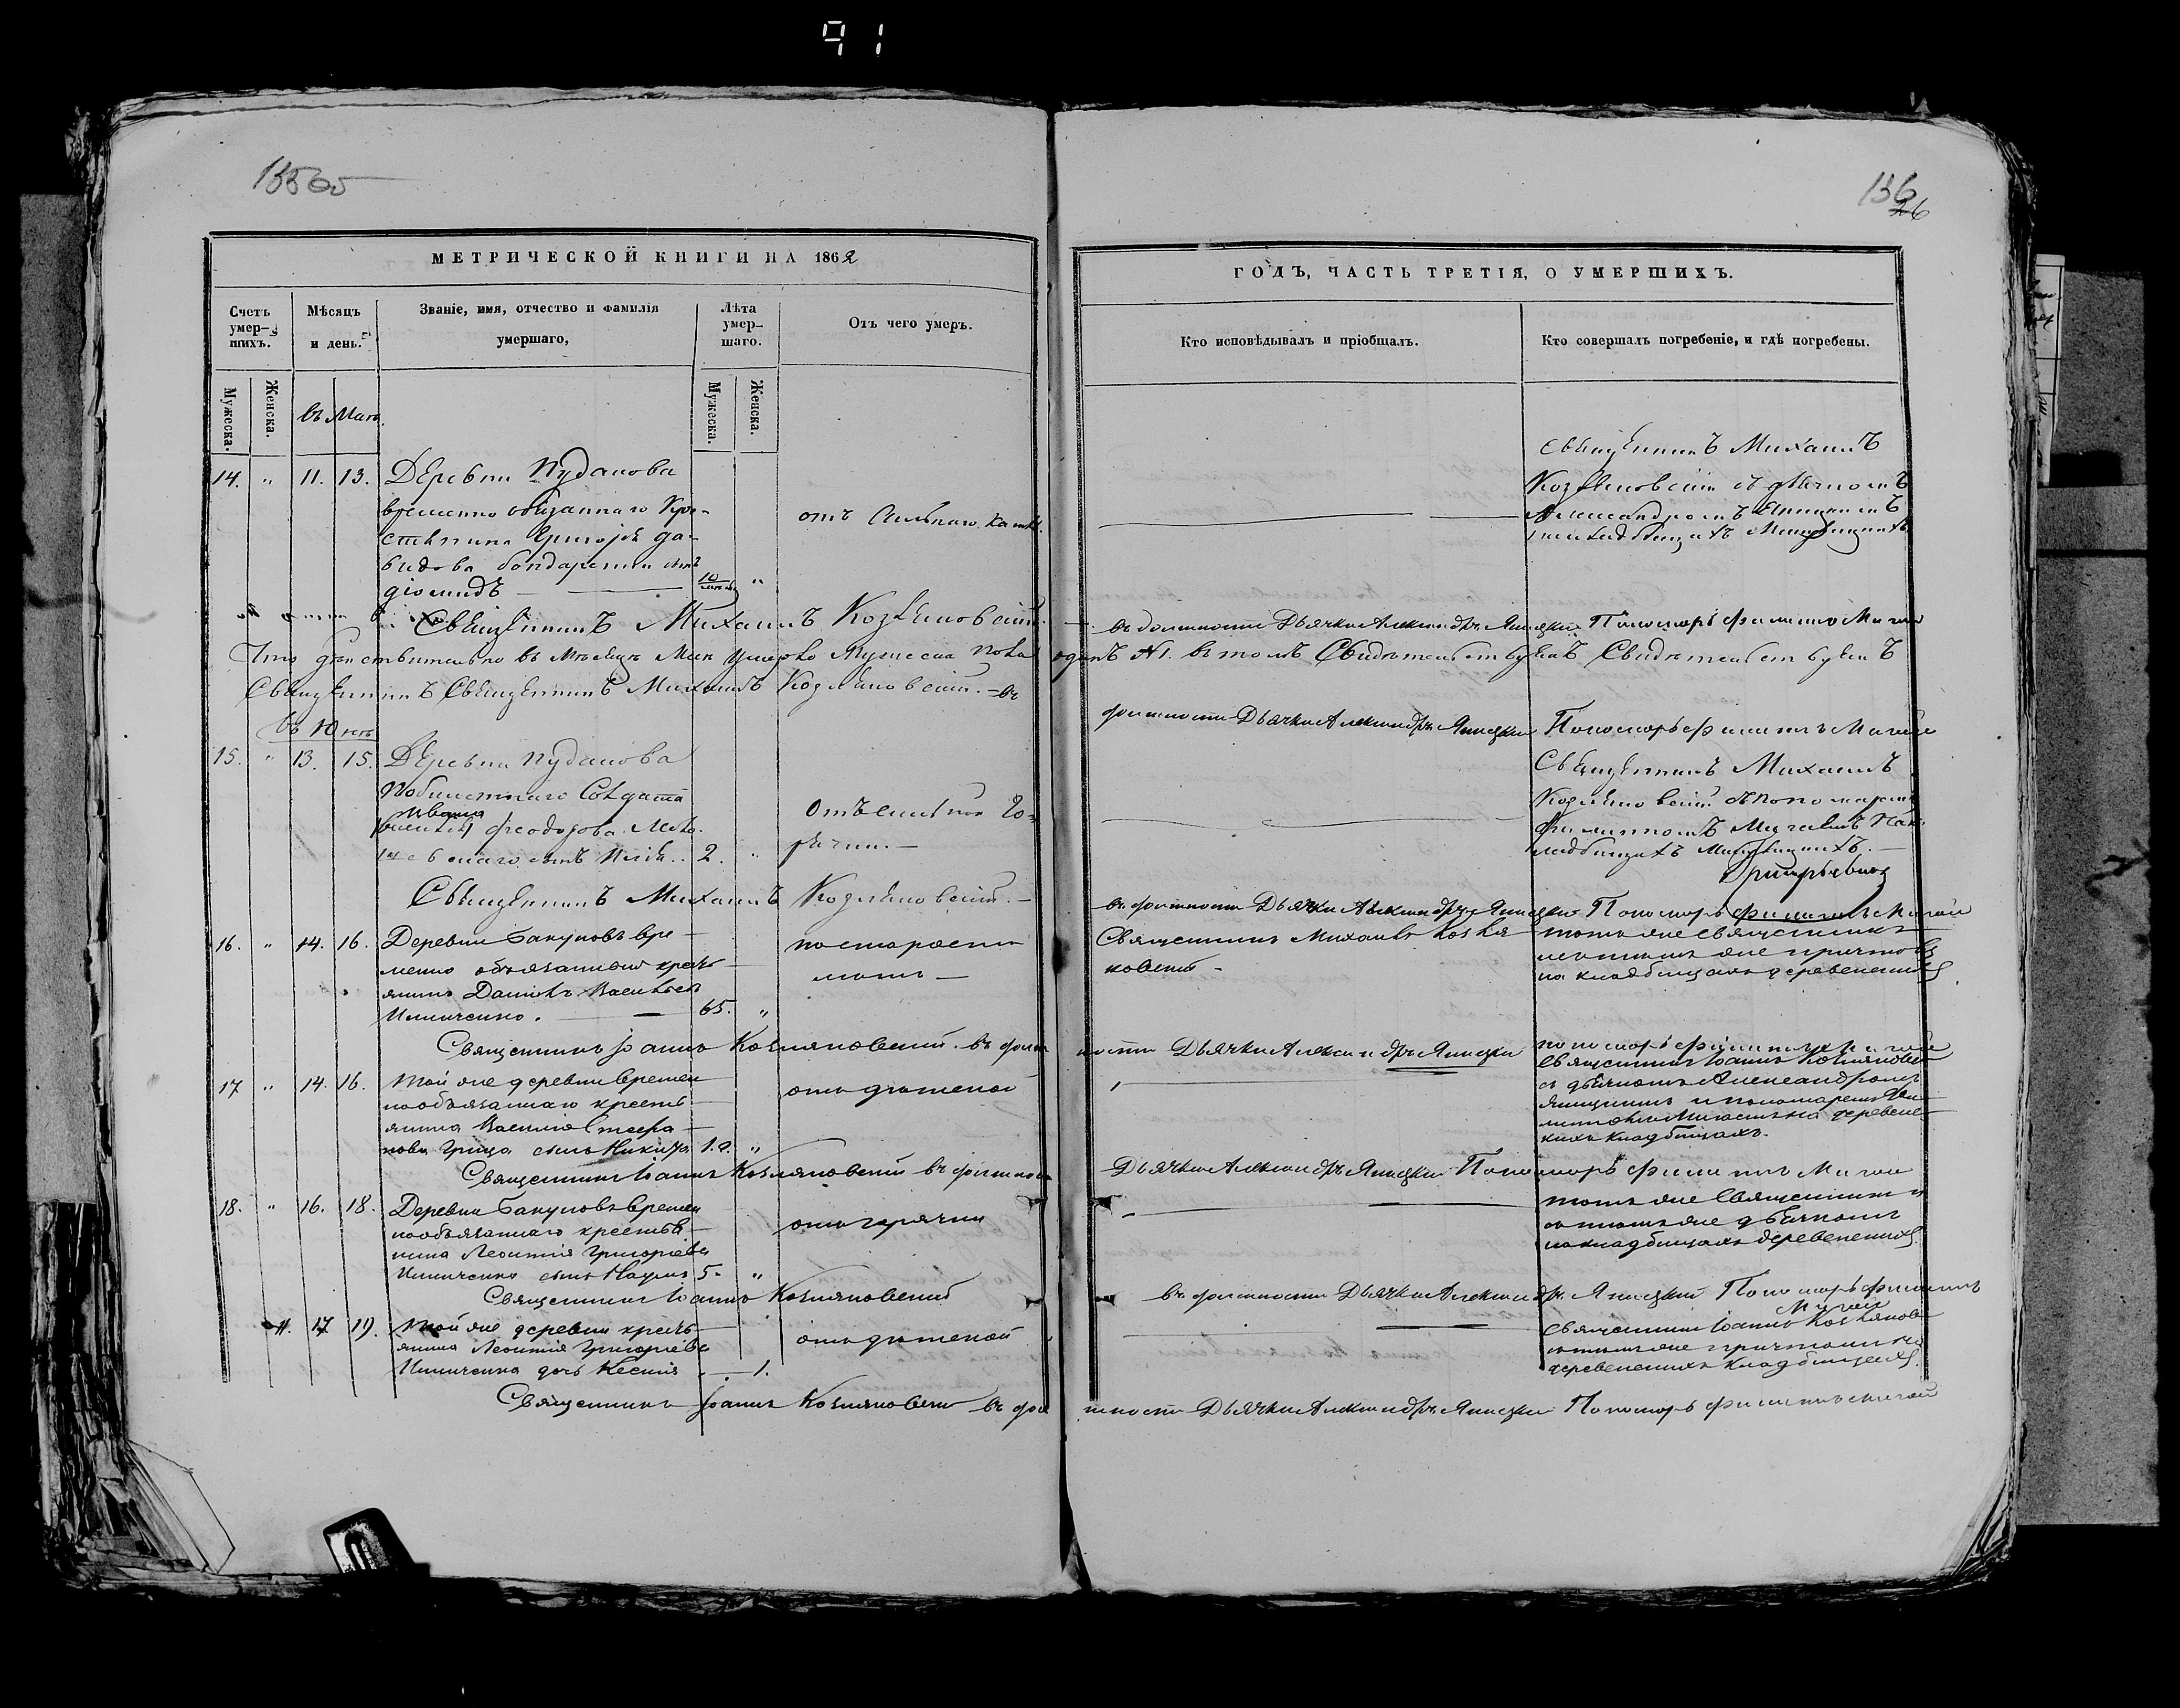 91
136
26
МЕТРИЧЕСКОЙ КНИГИ НА 1862
ГОДЪ, ЧАСТЬ ТРЕТІЯ, О УМЕРШИХЪ.
Счетъ умер-шихъ.
Мѣсяцъ и день.
Званіе, имя, отчество и фамилія
умершаго,
Лѣта умер-шаго.
Отъ чего умеръ.
Кто исповѣдывалъ и пріобщалъ.
Кто совершалъ погребеніе, и гдѣ погребены.
Мужеска.
Женска.
Мужеска.
Женска.
въ Маѣ
14. " 11. 13. Деревни Пуданова
временно обязаннаго Кре-
стьянина Григорія Да-
видова Бондаренки сынъ
Діомидъ
10 "
отъ сильнаго кашля
Священникъ Михаилъ
Козляновскій съ дьячкомъ
Александромъ
Священникъ Михаилъ Козляновскій
въ должности Дьячка Александръ Яницкій Пономарь Филиппъ Мигай
Что дѣйствительно въ Мѣсяцѣ Маѣ умерло Мужеска пола одинъ №1. въ томъ Свидѣтельствуемъ Свидѣтельствуемъ
Священникъ Священникъ Михаилъ Козляновскій. въ
должности Дьячка Александръ Яницкій Пономарь Филиппъ Мигай
въ Юнѣ
15. " 13. 15. Деревни Пуданова
Побилетнаго Солдата
Ивана
Феодорова
сынъ
2. "
Отъ сильной го-
рячки.
Священникъ Михаилъ
Козляновскій съ пономаремъ
Филиппомъ Мигаемъ на
кладбищахъ
Священникъ Михаилъ Козляновскій.
въ должности Дьячка Александръ Яницкій Пономарь Филиппъ Мигай
16. " 14. 16. Деревни Бакуновъ вре-
менно обязанный кресть-
янинъ Даніилъ Васильевъ
Ильченко. 65. "
по старости
лѣтъ
Священникъ Михаилъ Козля-
новскій
тотъ же священникъ
съ тѣмъ же причтомъ
на кладбищахъ деревенскихъ
Священникъ Іоаннъ Козляновскій. въ долж
ности Дьячка Александръ Яницкій
пономарь Филиппъ Мигай
17 " 14. 16. Той же деревни времен
нообязаннаго кресть-
янина Василія Стефа-
нова Грица сынъ Никита 1. "
отъ дѣтской
Священникъ Іоаннъ Козляновскій
съ дьячкомъ Александромъ
Яницкимъ и пономаремъ Фи-
липпомъ Мигаемъ на деревен-
скихъ кладбищахъ.
Священникъ Іоаннъ Козляновскій въ должнос
Дьячка Александръ Яницкій Пономарь Филиппъ Мигай
18. " 16. 18. Деревни Бакуновъ времен
нообязаннаго крестья-
нина Леонтія Григоріева
Ильченка сынъ Наумъ 5. "
отъ горячки
тотъ же Священникъ
съ тѣмъ же дьячкомъ
на кладбищахъ деревенскихъ.
Священникъ Іоаннъ Козляновскій
въ должности Дьячка Александръ Яницкій Пономарь Филиппъ
Мигай
17 19. Той же деревни кресть-
янина Леонтія Григоріева
Ильченка дочь Ксенія 1.
отъ дѣтской
Священникъ Іоаннъ Козлянов
съ тѣмъ же причтомъ на
деревенскихъ кладбищахъ.
Священникъ Іоаннъ Козляновскій въ дол
жности Дьячка Александръ Яницкій Пономарь Филиппъ Мигай